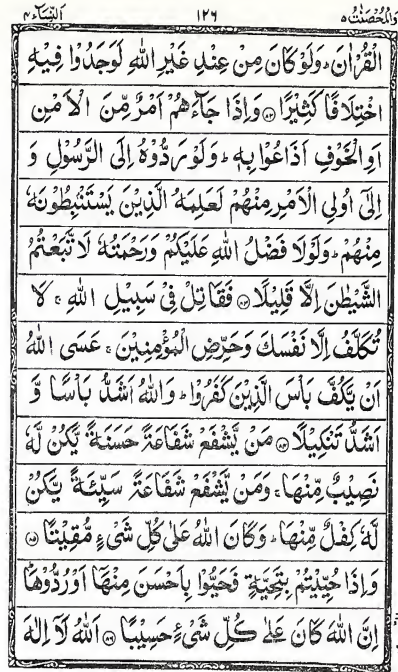 وَالْمُحْصَنٰتُ ۵ ١٢٦ اَلنِّسَآء ۴
الْقُرْاٰنَ ؕ وَلَوْ كَانَ مِنْ عِنْدِ غَيْرِ اللّٰهِ لَوَجَدُوْا فِيْهِ
اخْتِلَافًا كَثِيْرًا ﴿۸۲﴾ وَاِذَا جَآءَهُمْ اَمْرٌ مِّنَ الْاَمْنِ
اَوِ الْخَوْفِ اَذَاعُوْا بِهٖ ؕ وَلَوْ رَدُّوْهُ اِلَى الرَّسُوْلِ وَ
اِلٰٓى اُولِى الْاَمْرِ مِنْهُمْ لَعَلِمَهُ الَّذِيْنَ يَسْتَنْۢبِطُوْنَهٗ
مِنْهُمْ ؕ وَلَوْلَا فَضْلُ اللّٰهِ عَلَيْكُمْ وَرَحْمَتُهٗ لَاتَّبَعْتُمُ
الشَّيْطٰنَ اِلَّا قَلِيْلًا ﴿۸۳﴾ فَقَاتِلْ فِيْ سَبِيْلِ اللّٰهِ ۚ لَا
تُكَلَّفُ اِلَّا نَفْسَكَ وَحَرِّضِ الْمُؤْمِنِيْنَ ۚ عَسَى اللّٰهُ
اَنْ يَّكُفَّ بَاْسَ الَّذِيْنَ كَفَرُوْا ؕ وَاللّٰهُ اَشَدُّ بَاْسًا وَّ
اَشَدُّ تَنْكِيْلًا ﴿۸۴﴾ مَنْ يَّشْفَعْ شَفَاعَةً حَسَنَةً يَّكُنْ لَّهٗ
نَصِيْبٌ مِّنْهَا ۚ وَمَنْ يَّشْفَعْ شَفَاعَةً سَيِّئَةً يَّكُنْ
لَّهٗ كِفْلٌ مِّنْهَا ؕ وَكَانَ اللّٰهُ عَلٰى كُلِّ شَيْءٍ مُّقِيْتًا ﴿۸۵﴾
وَاِذَا حُيِّيْتُمْ بِتَحِيَّةٍ فَحَيُّوْا بِاَحْسَنَ مِنْهَآ اَوْ رُدُّوْهَا ؕ
اِنَّ اللّٰهَ كَانَ عَلٰى كُلِّ شَيْءٍ حَسِيْبًا ﴿۸۶﴾ اَللّٰهُ لَآ اِلٰهَ